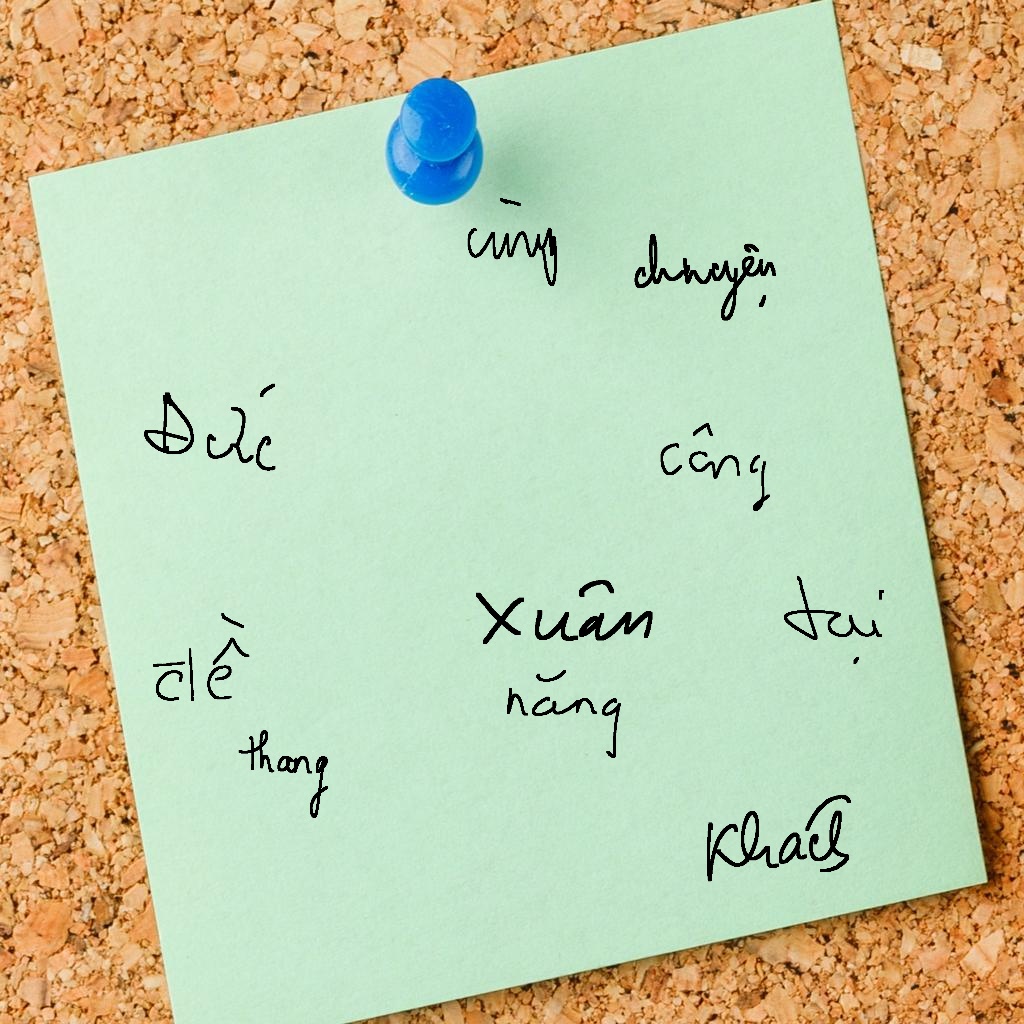 cùng chuyện
Đức công
đề Xuân tại
năng
thang
Khách